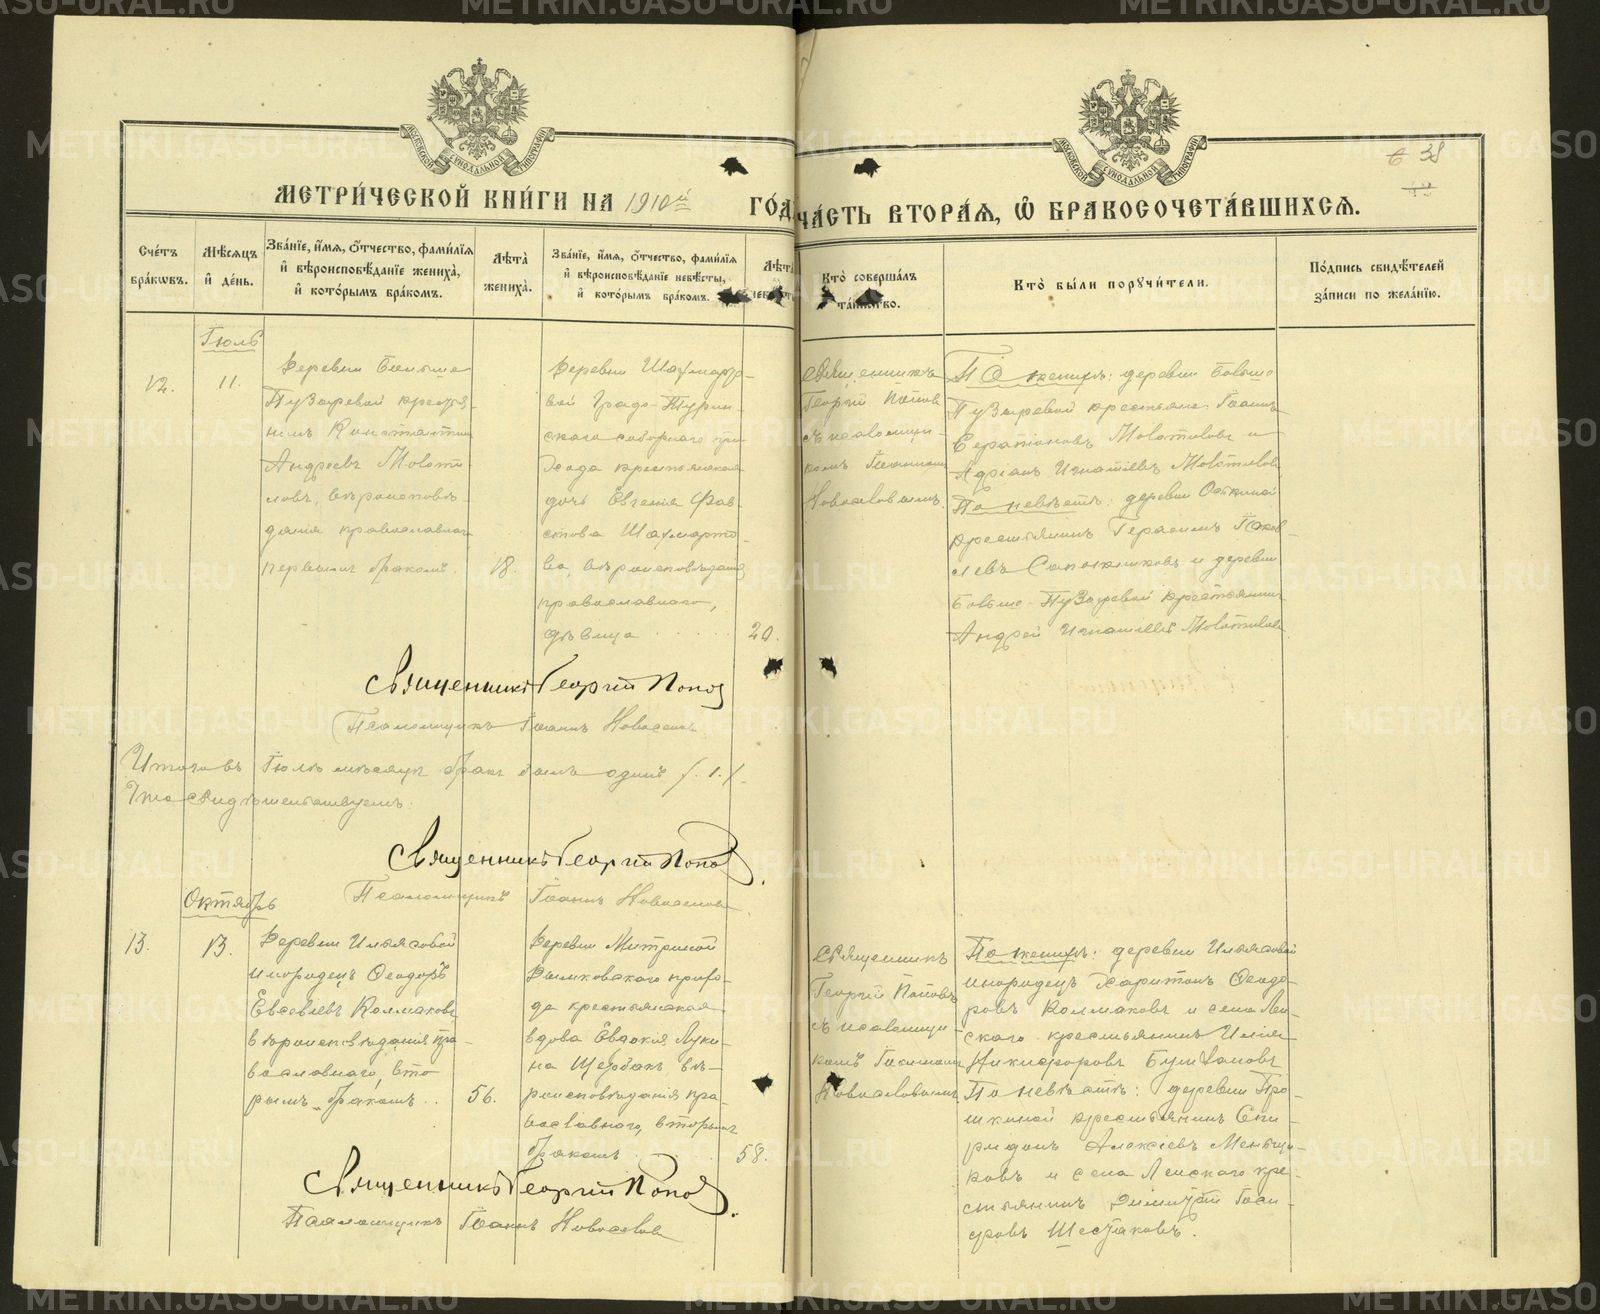 МЕТРИ́ЧЕСКОЙ КНИ́ГИ НА 1910й ГО́Д
ЧА́СТЬ ВТОРА́Я, Ѡ҆ БРАКОСОЧЕТА́ВШИХСЯ.
38
Сче́тъ бра́кѡвъ.
Мѣ́сяцъ и҆ де́нь.
Зва́нїе, и҆́мя, ѻ҆́тчество, фами́лїя и҆ вѣроисповѣ́данїе жениха̀, и҆ кото́рымъ бра́комъ.
Лѣ́та̀ жениха̀.
Зва́нїе, и҆́мя, ѻ҆́тчество, фами́лїя и҆ вѣроисповѣ́данїе невѣ́сты, и҆ кото́рымъ бра́комъ.
Лѣ́та
Кто̀ соверша́лъ та́инство.
Кто̀ бы́ли порꙋчи́тели.
По́дпись свидѣ́телей за́писи по жела́нїю.
Іюль
12.
11.
Деревни Больше
Пузыревой крестья-
нинъ Константинъ
Андреевъ Молоти-
ловъ, вѣроисповѣ-
данія православнаго
первымъ бракомъ.
18.
Деревни Шахмарто-
вой Градо-Турин-
скаго соборнаго при-
хода крестьянская
дочь Евгенія Фав-
стова Шахмарто-
ва, вѣроисповѣданія
православнаго,
дѣвица
20.
Священникъ
Георгій Поповъ
съ псаломщи-
комъ Іоанномъ
Новоселовымъ
По женихѣ: деревни Больше
Пузыревой крестьяне Іоаннъ
Серапіоновъ Молотиловъ и
Адріанъ Игнатіевъ Молотиловъ
По невѣстѣ: деревни
крестьянинъ Герасимъ Іаков-
левъ Сапожниковъ и деревни
Больше-Пузыревой крестьянинъ
Андрей Игнатіевъ Молотиловъ
Священникъ Георгій Поповъ
Псаломщикъ Іоаннъ Новоселовъ
Итого въ Іюлѣ мѣсяцѣ бракъ былъ одинъ /.1./.
Что свидѣтельствуемъ.
Священникъ Георгій Поповъ.
Псаломщикъ Іоаннъ Новоселовъ
Октябрь
13.
13.
Деревни Ильясовой
инородецъ Ѳеодоръ
Евсевіевъ Колмаковъ
вѣроисповѣданія пра-
вославнаго, вто-
рымъ бракомъ.
56.
Деревни Митриной
прихо-
да крестьянская
вдова Евдокія Луки-
на Щербакъ, вѣ-
роисповѣданія пра-
вославнаго, вторымъ
бракомъ
58.
Священникъ
Георгій Поповъ
съ псаломщи-
комъ Іоанномъ
Новоселовымъ
По женихѣ: деревни Ильясовой
инородецъ Харитонъ Ѳеодо-
ровъ Колмаковъ и села Лен-
скаго крестьянинъ Илія
Никифоровъ Бушлановъ
По невѣстѣ: деревни Про-
шкиной крестьянинъ Спи-
ридонъ Алексіевъ Меньщи-
ковъ и села Ленскаго кре-
стьянинъ Димитрій
Шестаковъ.
Священникъ Георгій Поповъ.
Псаломщикъ Іоаннъ Новоселовъ
METRIKI.GASO-URAL.RU